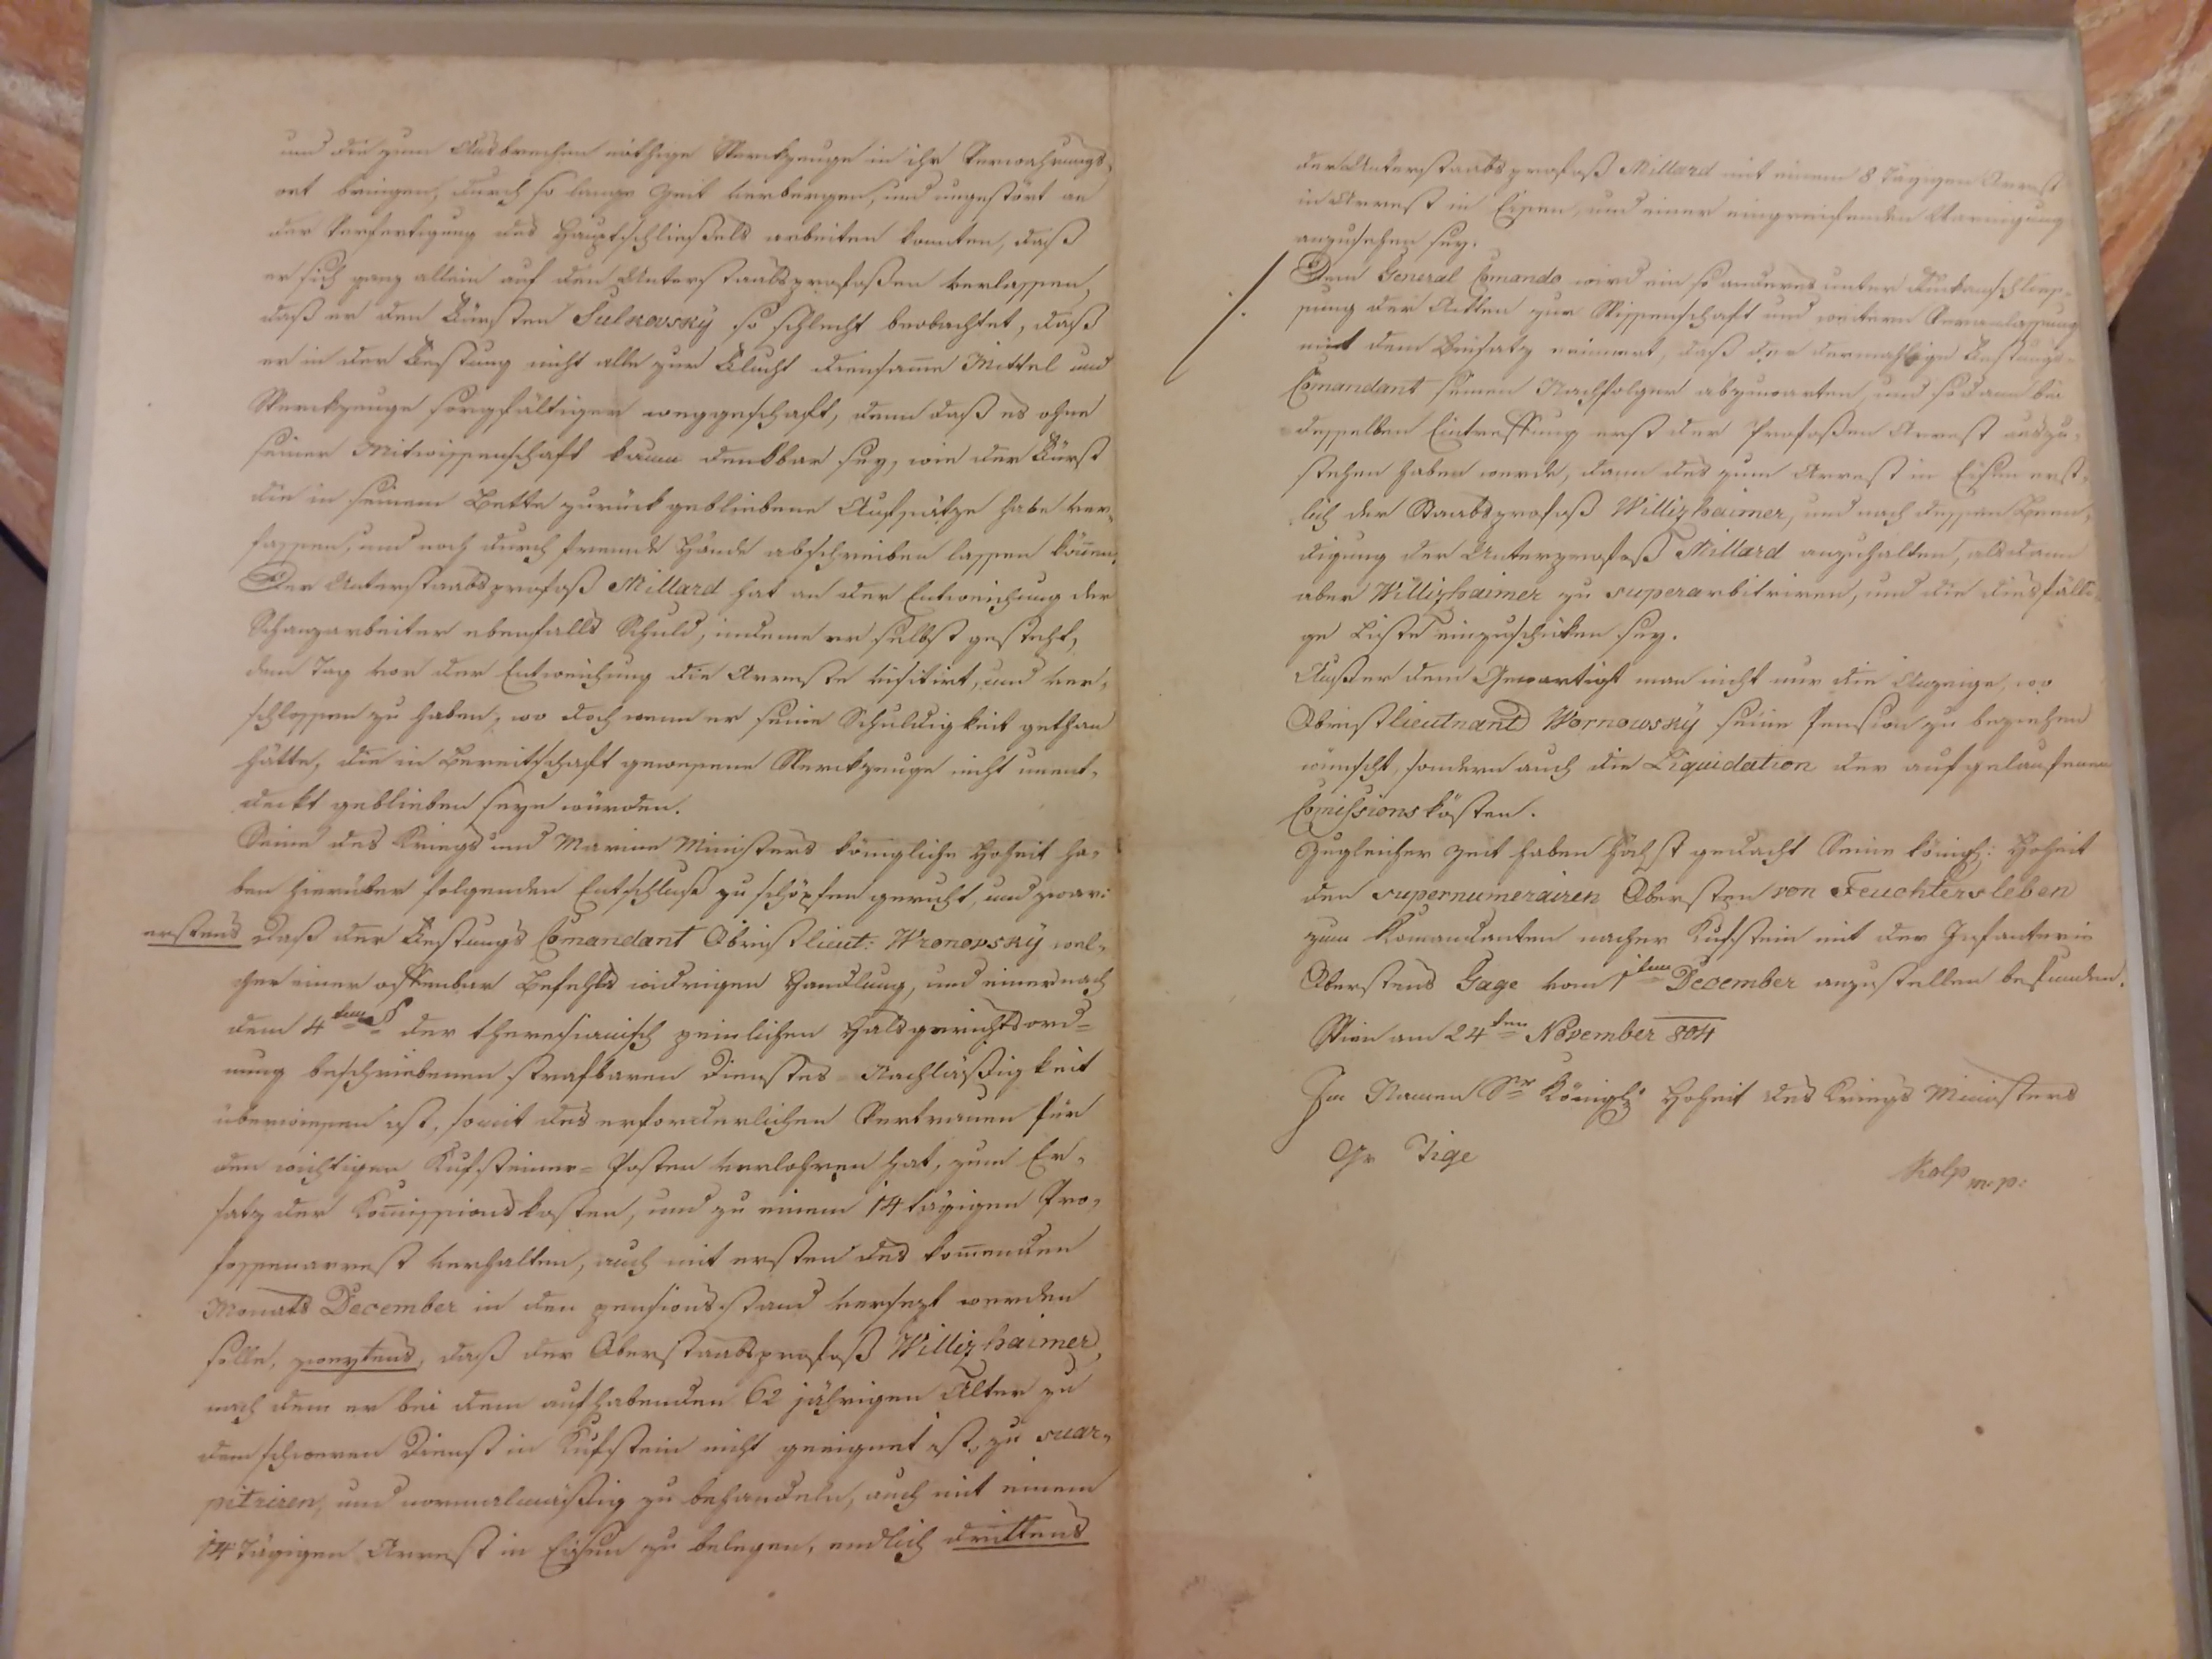 und die zum Ausbrechen nöthige Werckzeuge in ihr Verwahrungs-
ort bringen, durch so lange Zeit verbergen, und ungestört an
der Verfertigung des Hauptschließels arbeiten konnten, daß
er sich ganz allein auf den Unterstaabsprofoßen verlassen,
daß er den Fürsten Sulkovskÿ so schlecht beobachtet, daß
er in der Festung nicht alle zur Flucht diensame Mittel und
Werckzeuge sorgfältiger weggeschaft, denn daß es ohne
seiner Mitwissenschaft kaum denkbar sey, wie der Fürst
die in seinem Bette zurück gebliebene Aufsätze habe ver-
fassen, und noch durch fremde Hände abschreiben lassen können.
Der Unterstaabsprofoß Millard hat an der Entweichung der
Schanzarbeiter ebenfalls Schuld, indeme er selbst gesteht,
den Tag vor der Entweichung die Arreste visitirt, und ver-
schlossen zu haben, wo doch wenn er seine Schuldigkeit gethan
hätte, die in Bereitschaft gewesene Werckzeuge nicht unent-
deckt geblieben seyn würden.
Seine des Kriegs und Marine Ministers königliche Hoheit ha-
ben hierüber folgenden Entschluß zu schöpfen geruht, und zwar:
erstens daß der Festungs Comandant Obristlieut: Wronovskÿ wel-
cher einer offenbar Befehls widrigen Handlung, und einer nach
dem 4ten § der theresianisch peinlichen Halsgerichtsord-
nung beschriebenen strafbaren Dienstes-Nachläßigkeit
überwiesen ist, somit das erforderlichen Vertrauen für
den wichtigen Kufsteiner-Posten verlohren hat, zum Er-
satz der Komissionskosten, und zu einem 14 tägigen Pro-
fossenarrest verhalten, auch mit ersten des komenden
Monats December in den pensionsstand versezt werden
solle, zweytens, daß der Oberstaabsprofoß Willizhaimer,
nach dem er bei dem aufhabenden 62 jährigen Alter zu
dem schweren Dienst in Kufstein nicht geeignet ist, zu suar-
pitriren, und normalmäßig zu behandeln, auch mit einem
14 tägigen Arrest in Eisen zu belegen, endlich drittens
der Unterstaabsprofoß Millard mit einem 8 tägigen Arrest
in Arrest in Eisen, und einer eingreifenden
anzusehen sey.
Dem General Comando wird ein so anderes unter Rückanschlies-
sung der Ackten zur Wissenschaft und weitern Veranlassung
mit dem Beisatz erinnert, daß der dermahlige Festungs-
Comandant seinen Nachfolger abzuwarten, und sodann bei
desselben Eintreffung erst der Profoßen Arrest auszu-
stehen haben werde, dann das zum Arrest in Eisen erst-
lich der Staabsprofoß Willizhaimer, und nach dessen Been-
digung der Unterprofoß Millard anzuhalten, alsdann
aber Willizhaimer zu superarbitriren, und die diesfälli-
ge Liste einzuschicken sey.
Außer dem Gewärtigt man nicht nur die Anzeige, wo
Obristlieutnant Wornowskÿ seine Pension zu beziehen
wünscht, sondern auch die Liquidation der aufgelaufenen
Comissionskösten.
Zugleicher Zeit haben Höchst gedacht Seine königl: Hoheit
den supernumerairen Obersten von Feuchtersleben
zum Komandanten nacher Kufstein mit der Infanterie
Oberstens Gage vom 1ten December anzustellen befunden.
Wien am 24ten November 804
Im Namen Sr königl: Hoheit des Kriegs Ministers
Gr Tige
Kolp m. p: